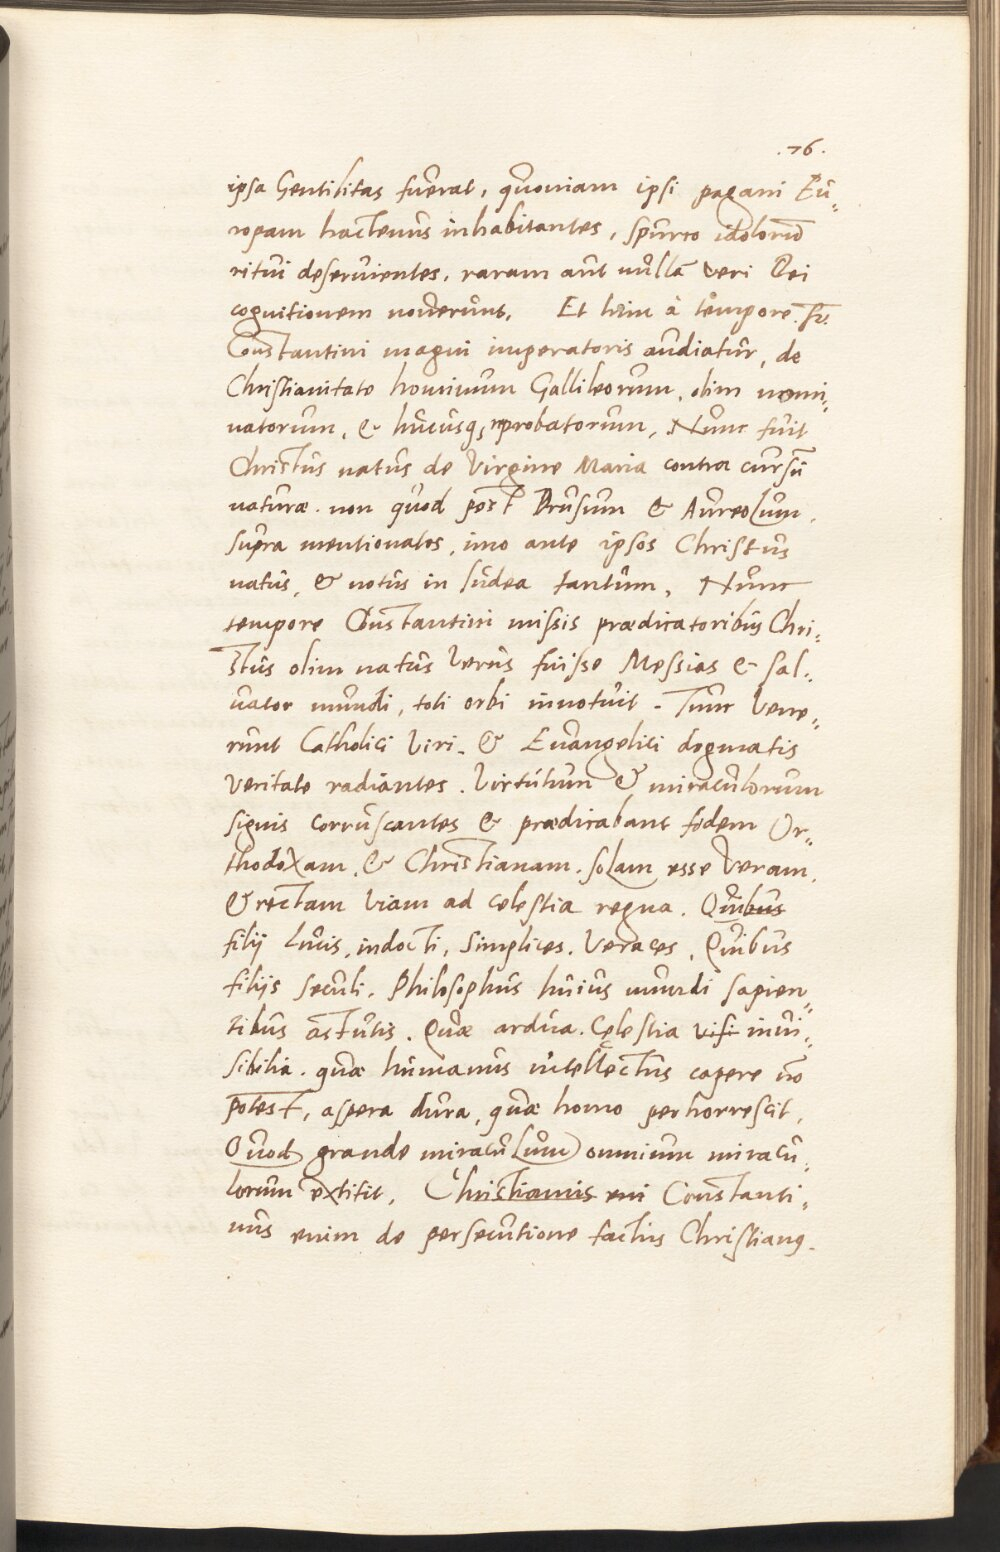 .76.
ipsa Gentilitas fuerat, quoniam ipsi pagani Eu„
ropam hactenus inhabitantes, spurco idolorū
ritui deservientes, raram aut nullā veri Dei
cognitionem noverunt. Et hinc à tempore
Constantini magni imperatoris audiatur, de
Christianitate hominum Gallileorum, olim nomi„
natorum, & hucusq, reprobatorum, Nunc fuit
Christus natus de Virgine Maria contra cursū
naturæ. non quod post Drusum & Aureolum,
supra mentionatos, imo ante ipsos Christus
natus, & notus in Iudea tantum, Nunc
tempore Constantini missis prædicatoribus Chri„
stus olim natus verus fuisse Messias & sal„
uator mundi, toti orbi innotuit. Tunc vene„
runt Catholici viri. & Euangelici dogmatis
veritate radiantes. virtutum & miraculorum
signis corruscantes & prædicabant fidem Or„
thodoxam, & Christianam. solam esse veram,
& rectam viam ad celestia regna. Quibus
filij lucis, indocti, simplices. veraces, Quibus
filijs seculi. Philosophus huius mundi sapien„
tibus astutis. Quæ ardua. Celestia visi invi„
sibilia. quæ humanus intellectus capere nō
potest, aspera dura, quæ homo perhorrescit,
Quod grande miraculum omnium miracu„
lorum extitit, Christianis eni Constanti„
nus enim de persecutione factus Christianus.